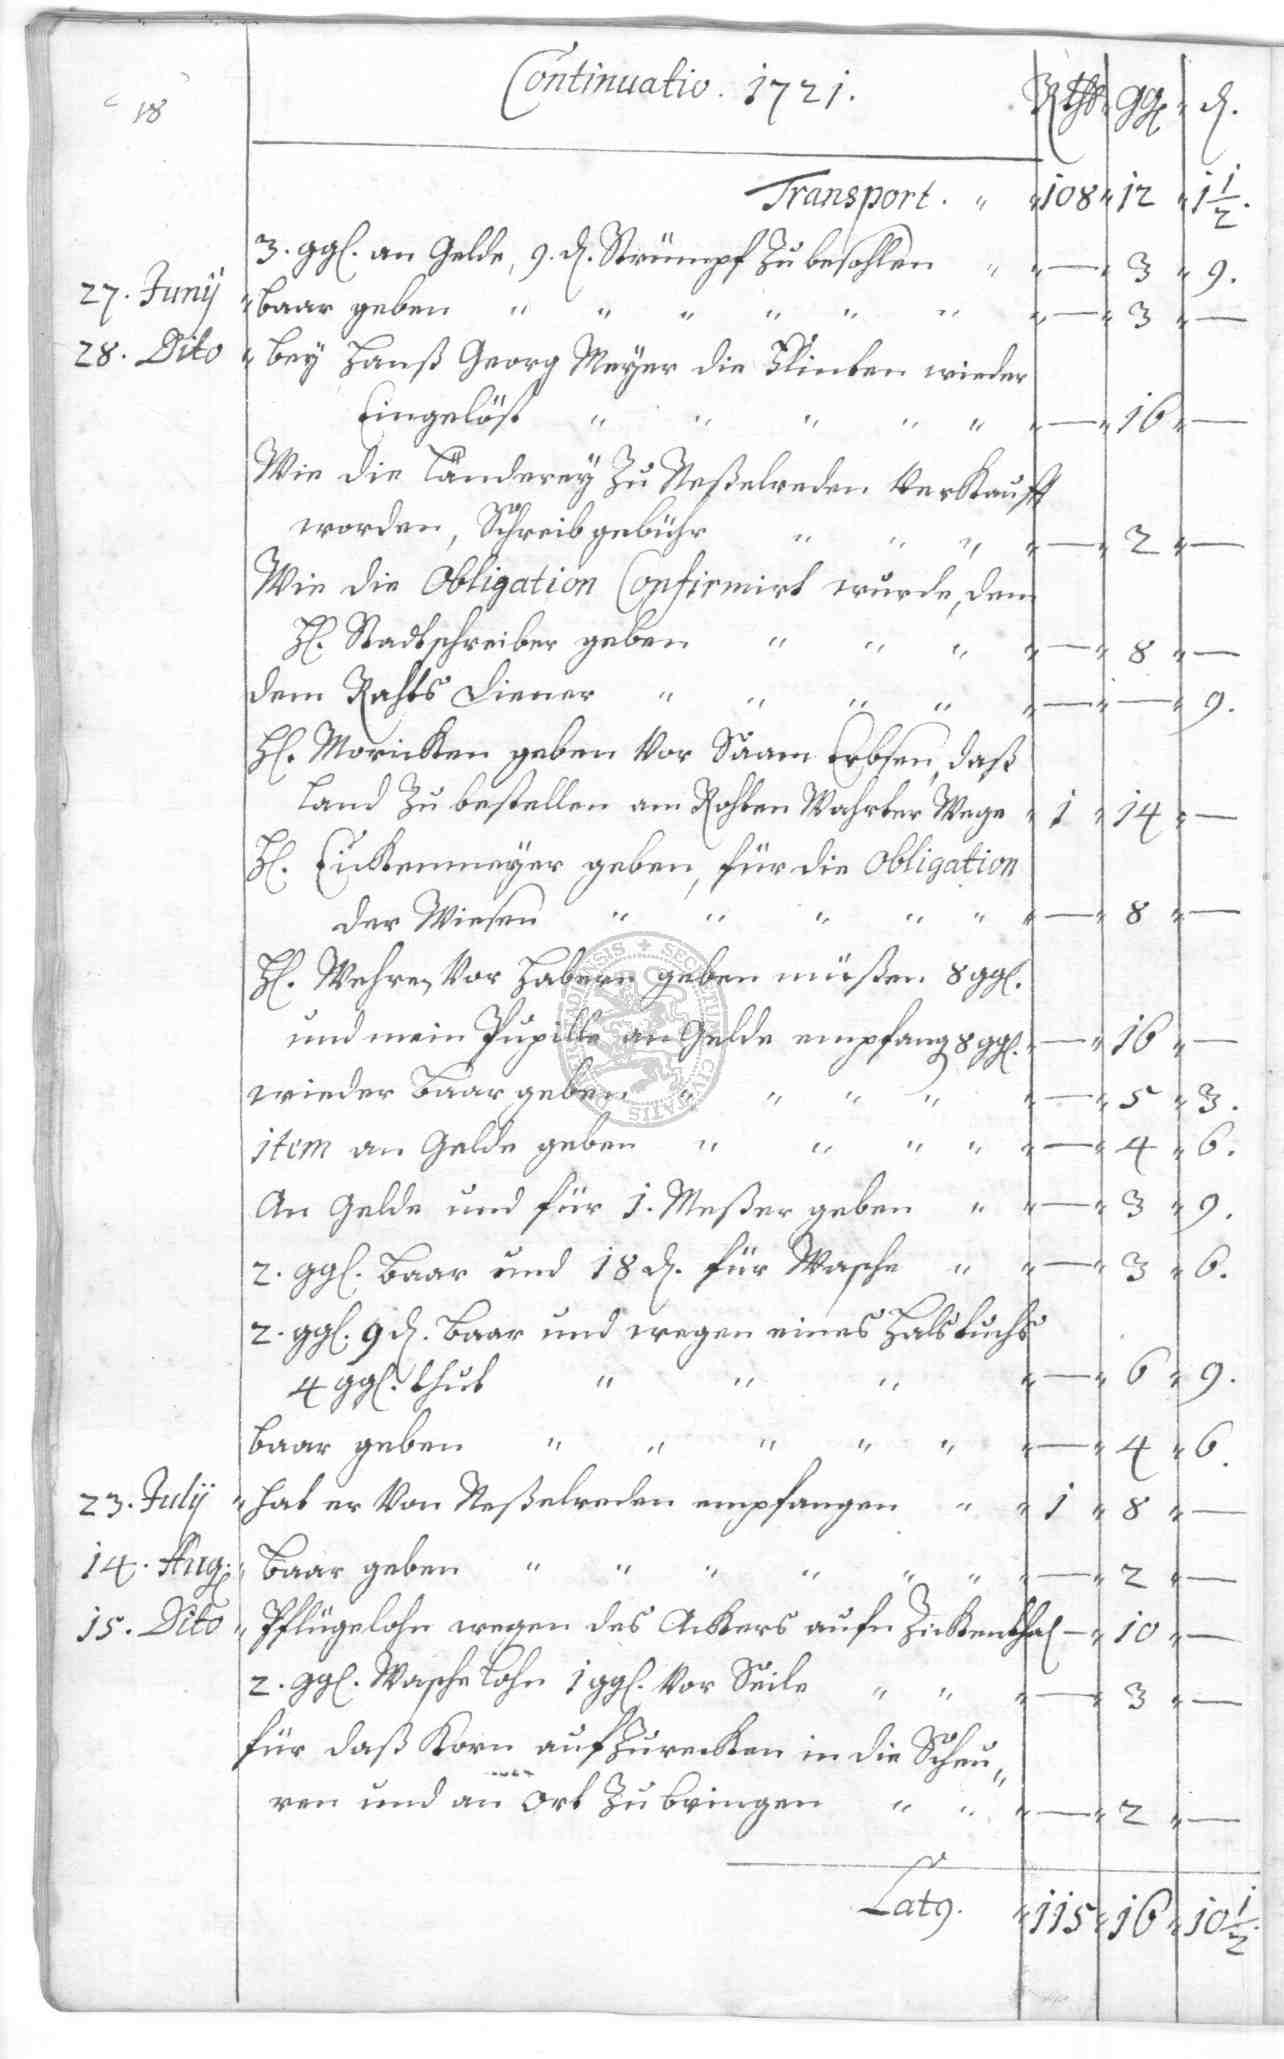 18
Continuatio. 1721. Rthl. ggl. d.
Transport. " " 108 " 12 " 1 1/2.
3. ggl. an Gelde, 9. d. Strümpf Zu besohlen " " — " 3 " 9.
27. Junÿ " Baar geben " " " " " " " — " 3 " —
28. Dito " beÿ Hanß Georg Meÿer die Flinten wieder
Eingelöst " " " " " " — " 16 " —
Wie die Länderey Zu Neßelreden Verkaufft
worden, Schreibgebühr " " " " — " 2 " —
Wie die Obligation Confirmirt wurde, dem
Hl. Stadtschreiber geben " " " " — " 8 " —
dem Rahts Diener " " " " " — " — " 9.
Hl. Moricken geben Vor Saam Erbsen, daß
Land Zu bestellen am Rohten Wahrter Wege " 1 " 14 " —
Hl. Eickenmeÿer geben, für die Obligation
der Wiesen " " " " " " — " 8 " —
Hl. Wehren Vor Habern geben müßen 8 ggl.
und mein Pupille an Gelde empfang 8 ggl. " — " 16 " —
wieder Baar geben " " " " " — " 5 " 3.
item an Gelde geben " " " " " — " 4 " 6.
An Gelde und für 1. Meßer geben " " — " 3 " 9.
2. ggl. Baar und 18 d. für Wasche " " — " 3 " 6.
2. ggl. 9 d. Baar und wegen eines Halstuchs
4 ggl. thut " " " " — " 6 " 9.
Baar geben " " " " " " — " 4 " 6.
23. Julÿ " hat er Von Neßelreden empfangen " " 1 " 8 " —
14. Aug. " Baar geben " " " " " " " — " 2 " —
15. Dito " Pflügelohn wegen des Ackers aufn Zickenthal — " 10 " —
2. ggl. Wasche Lohn 1 ggl. Vor Seile " " " — " 3 " —
für daß Korn auf Zurecken in die Scheu"
ren und an Ort Zu bringen " " " — " 2 " —
Lat9. " 115 " 16 " 10 1/2.